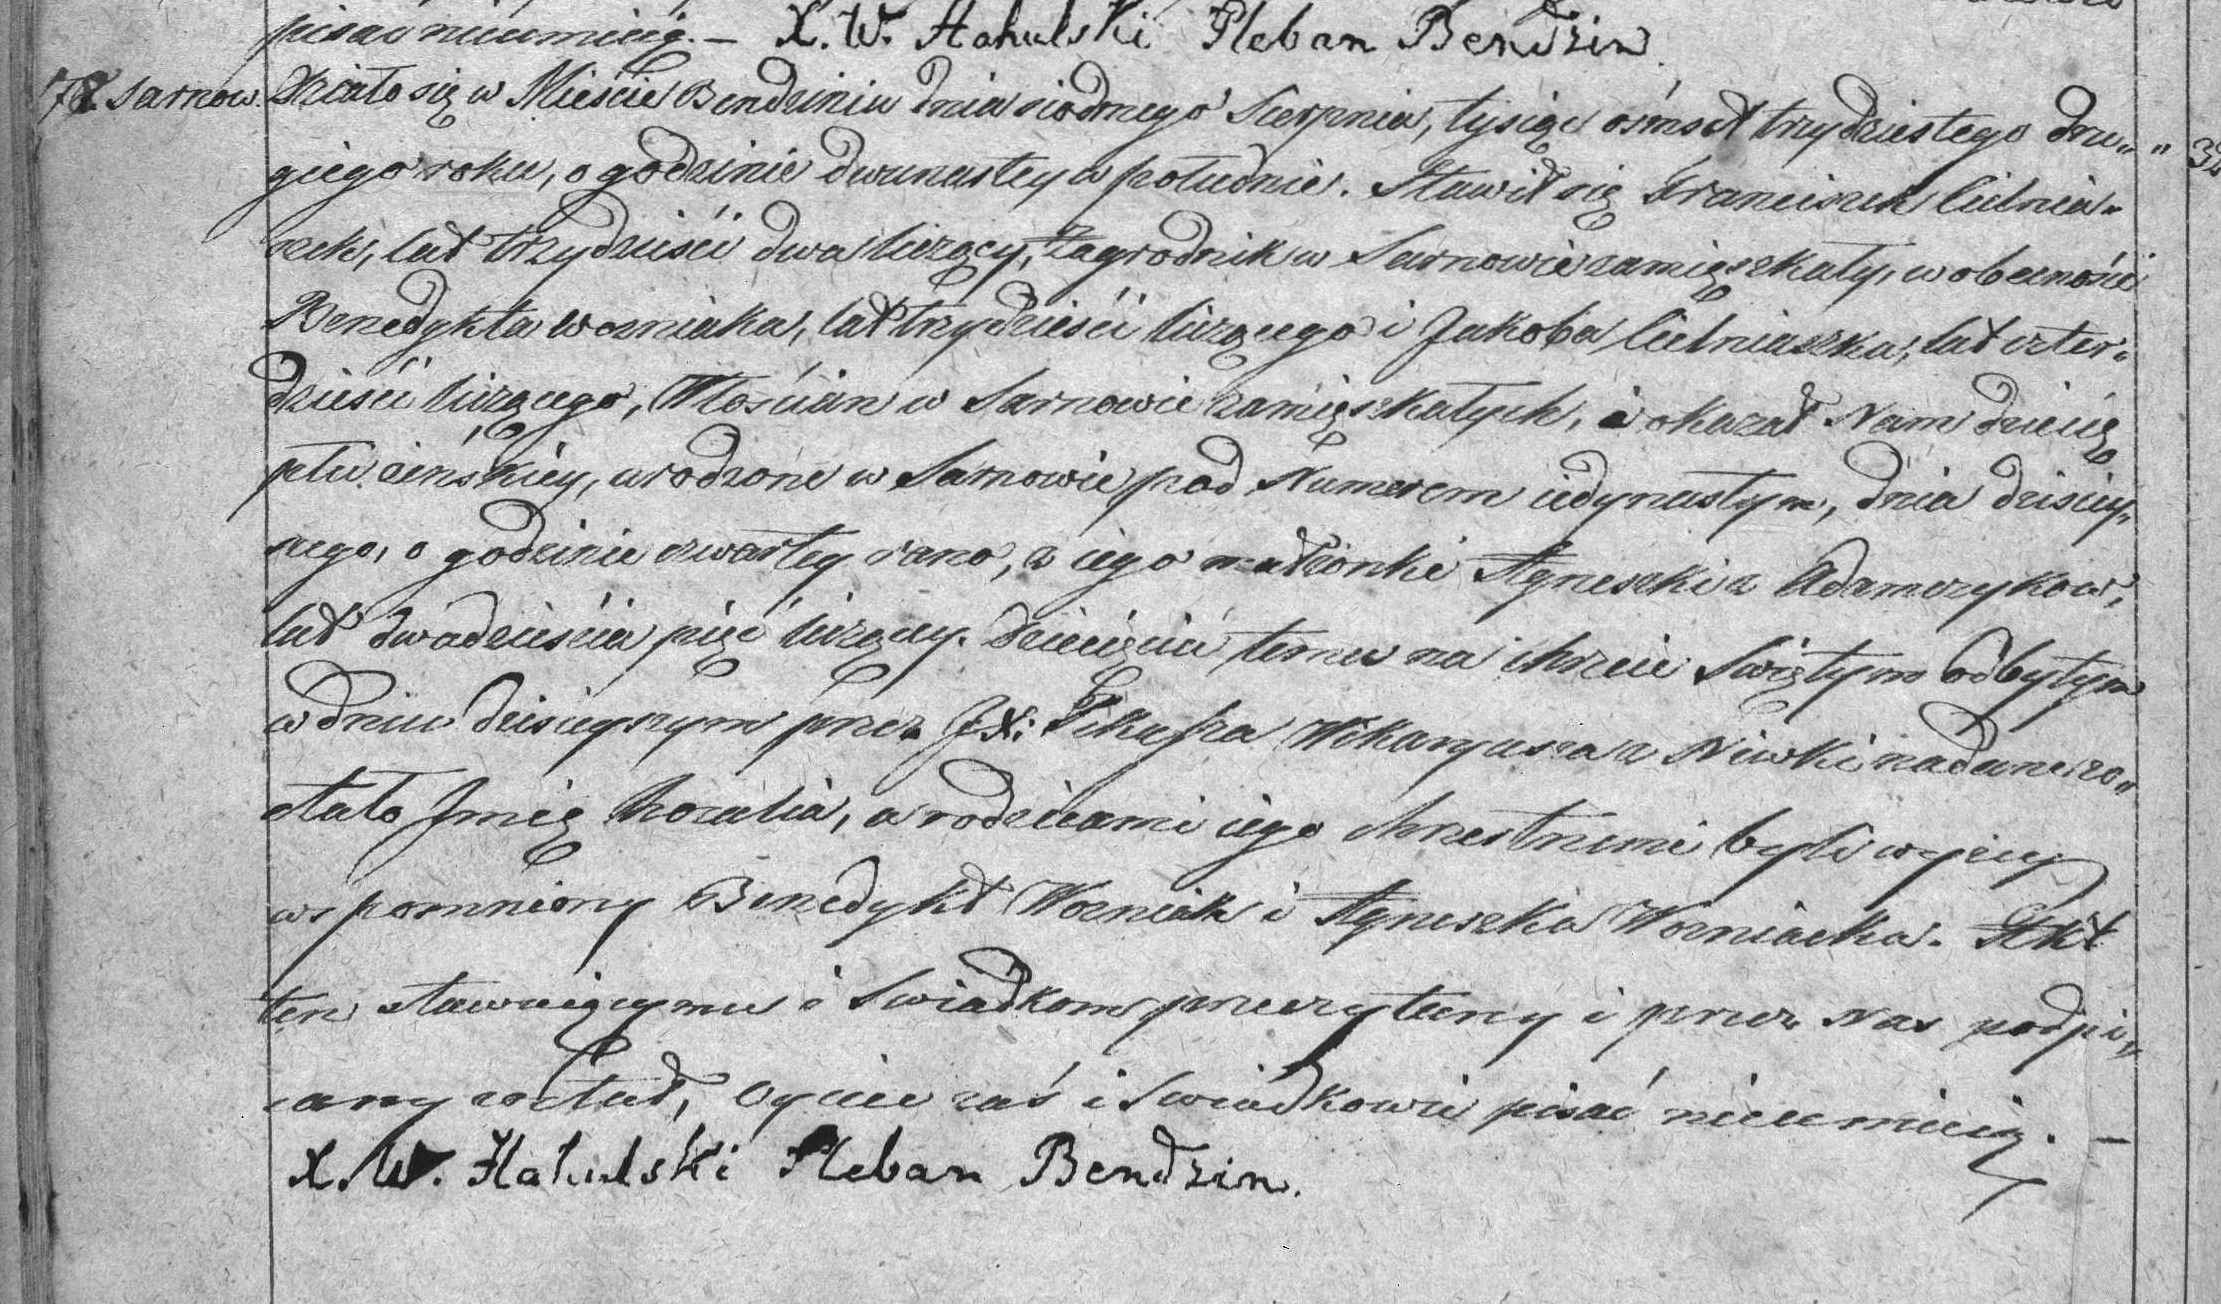 pisać nieumieią. – X. W. Hahulski Pleban Bendzin.
Sarnow. Działo się w Mieście Bendziniu dnia siodmego Sierpnia, tysiąc ośmset trzydziestego dru„
giego roku, o godzinie dwunastey w południe. Stawił się Franciszek Cielnia„
szek, lat trzydzieści dwa liczący, Zagrodnik w Sarnowie zamięszkały, w obecności
Benedykta Wozniaka, lat trzydzieści liczącego i Jakoba Cielniaszka, lat czter„
dzieści liczącego, Włościan w Sarnowie zamięszkałych, i okazał Nam dziecię
płci żeńskiey, urodzone w Sarnowie pod Numerem iedynastym, dnia dzisiey„
szego, o godzinie czwartey rano, z iego małżonki Agneszki z Adamczykow,
lat dwadzieścia pięć liczącey. Dziecięciu temu na chrzcie Swiętym odbytym
w dniu dzisieyszym przez JX: Wikaryusza z Niwki nadane zo„
stało Jmię Rozalia, a rodzicami iego chrzestnemi byli wyżey
wspomniony Benedykt Wozniak i Agneszka Wozniacka. Akt
ten stawaiącemu i Swiadkom przeczytany i przez Nas podpi„
sany został, Oyciec zaś i Swiadkowie pisać nieumieią. –
X. W. Hahulski Pleban Bendzin.